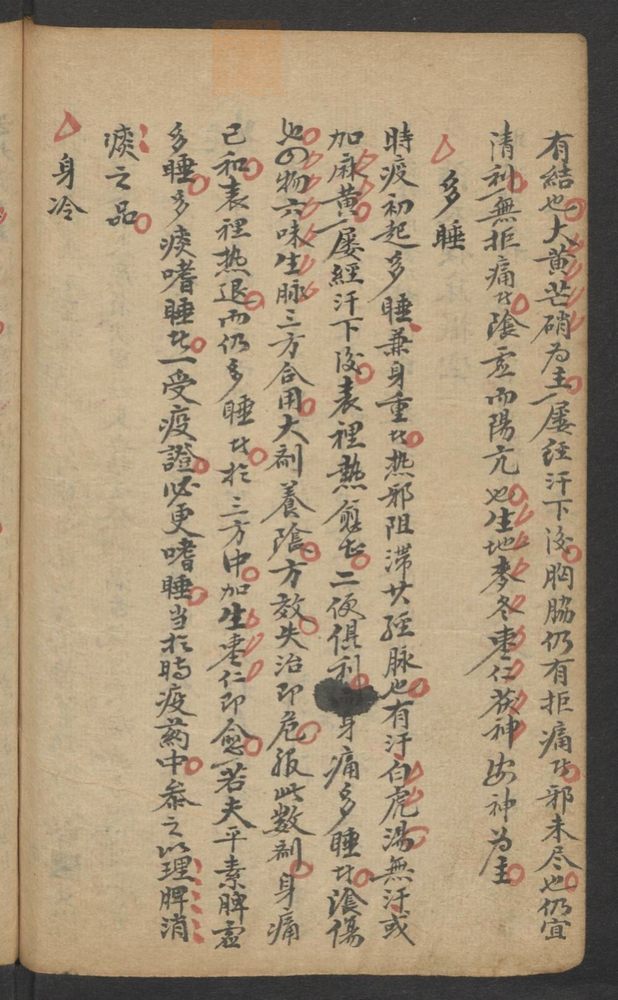 有結也大黃芒硝為主一屢經汗下後胸脇仍有拒痛者邪未尽也仍宜
清利無拒痛者陰虛而陽亢也生地麥冬棗仁茯神安神為主
多睡
時疫初起多睡兼身重者热邪阻滞其經脉也有汗白虎湯無汗或
加麻黃一屢經汗下後表裡熱愈者二便俱利身痛多睡者陰傷
也四物六味生脉三方合用大劑養陰方效失治即危服此数劑身痛
已和表裡热退而仍多睡者於三方中加生棗仁即愈若夫平素脾虛
多睡多痰嗜睡者一受疫證必更嗜睡当於時疫药中叅之以理脾消
痰之品
身冷